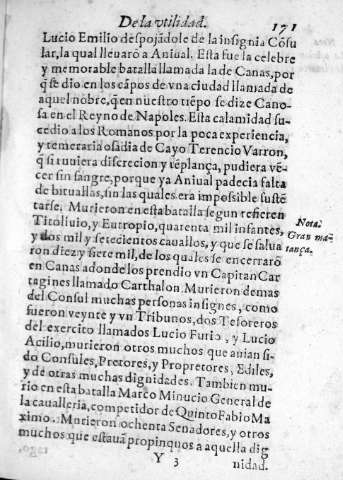 De la vtilidad.
171
Lucio Emilio despojãdole de la insignia Cõsu
lar, la qual lleuarõ a Anìual. Esta fue la celebre
y memorable batalla llamada la de Canas, por
q̃ se dio en los cãpos de vna ciudad llamada de
aquel nõbre, q̃ en nuestro tiẽpo se dize Cano-
sa en el Reyno de Napoles. Esta calamidad su-
cedio a los Romanos por la poca experiencia,
y temeraria osadia de Cayo Terencio Varron,
q̃ si tuuiera discrecion y tẽplança, pudiera vẽ-
cer sin sangre, porque ya Anìual padecia falta
de bituallas, sin las quales era impossible sustẽ
tarse. Murieron en esta batalla segun refieren
Titoliuio, y Eutropio, quarenta mil infantes,
y dos mil y setecientos cauallos, y que se salua
ron diez y siete mil, de los quales se encerrarõ
en Canas adonde los prendio vn Capitan Car
tagines llamado Carthalon. Murieron demas
del Consul muchas personas insignes, como
fueron veynte y vn Tribunos, dos Tesoreros
del exercito llamados Lucio Furio, y Lucio
Acilio, murieron otros muchos que auian si-
do Consules, Pretores, y Propretores, Ediles,
y de otras muchas dignidades. Tambien mu-
rio en esta batalla Marco Minucio General de
la caualleria, competidor de Quinto Fabio Ma
ximo. Murieron ochenta Senadores, y otros
muchos que estauã propinquos a aquella dig
Y 3
nidad.
Nota.
Gran ma-
tança.